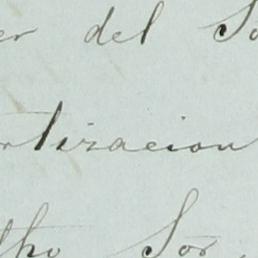 er del So
rtizacion
tho Sor